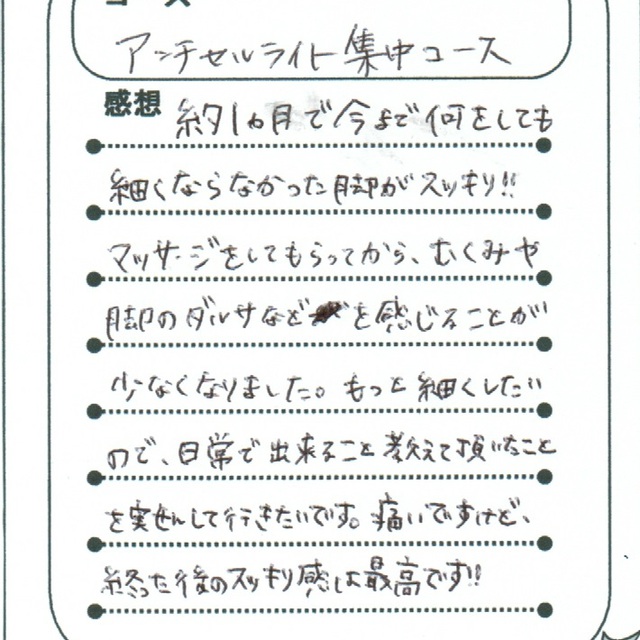 コース
アンチセルライト集中コース
感想 約1ヵ月で今まで何をしても
細くならなかった脚がスッキリ!!
マッサージをしてもらってから、むくみや
脚のダルサなどを感じることが
少なくなりました。もっと細くしたい
ので、日常で出来ること教えて頂いたこと
を実せんして行きたいです。痛いですけど、
終った後のスッキリ感は最高です!!